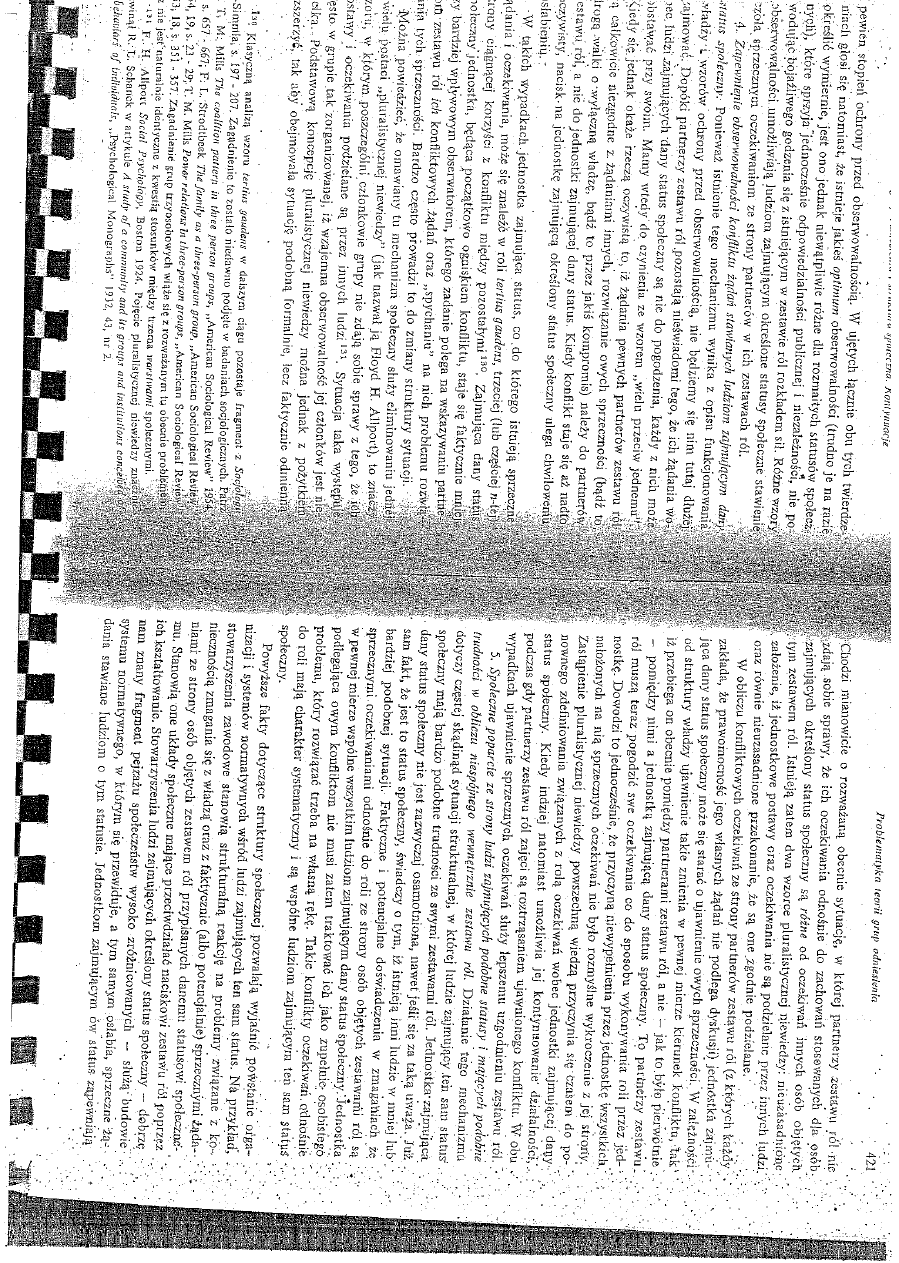 pewien stopień ochrony przed obserwowalnością. W ujętych łącznie obu tych twierdze-
niach głosi się natomiast, że istnieje jakieś optimum obserwowalności (trudno je na razie
określić wymiernie, jest ono jednak niewątpliwie różne dla rozmaitych statusów społecz-
nych), które sprzyja jednocześnie odpowiedzialności publicznej i niezależności, nie po-
wodując bojaźliwego godzenia się z istniejącym w zestawie ról rozkładem sił. Różne wzory
obserwowalności umożliwiają ludziom zajmującym określone statusy społeczne stawienie
czoła sprzecznym oczekiwaniom ze strony partnerów w ich zestawach ról.
4. Zapewnienie obserwowalności konfliktu żądań stawianych ludziom zajmującym dany
status społeczny. Ponieważ istnienie tego mechanizmu wynika z opisu funkcjonowania
władzy i wzorów ochrony przed obserwowalnością, nie będziemy się nim tutaj dłużej
zajmować. Dopóki partnerzy zestawu ról pozostają nieświadomi tego, że ich żądania wo-
bec ludzi zajmujących dany status społeczny są nie do pogodzenia, każdy z nich może
obstawać przy swoim. Mamy wtedy do czynienia ze wzorem „wielu przeciw jednemu”.
Kiedy się jednak okaże rzeczą oczywistą to, iż żądania pewnych partnerów zestawu ról
są całkowicie niezgodne z żądaniami innych, rozwiązanie owych sprzeczności (bądź to
drogą walki o wyłączną władzę, bądź to przez jakiś kompromis) należy do partnerów
zestawu ról, a nie do jednostki zajmującej dany status. Kiedy konflikt staje się aż nadto
oczywisty, nacisk na jednostkę zajmującą określony status społeczny ulega chwilowemu
osłabieniu.
W takich wypadkach jednostka zajmująca status, co do którego istnieją sprzeczne
żądania i oczekiwania, może się znaleźć w roli tertius gaudens, trzeciej (lub częściej n-tej)
strony ciągnącej korzyści z konfliktu między pozostałymi¹³⁰. Zajmująca dany status
społeczny jednostka, będąca początkowo ogniskiem konfliktu, staje się faktycznie mniej
czy bardziej wpływowym obserwatorem, którego zadanie polega na wskazywaniu partne-
rom zestawu ról ich konfliktowych żądań oraz „spychanie” na nich problemu rozwią-
zania tych sprzeczności. Bardzo często prowadzi to do zmiany struktury sytuacji.
Można powiedzieć, że omawiany tu mechanizm społeczny służy eliminowaniu jednej
wielu postaci „pluralistycznej niewiedzy” (jak nazwał ją Floyd H. Allport), to znaczy
wzoru, w którym poszczególni członkowie grupy nie zdają sobie sprawy z tego, że ich
postawy i oczekiwania podzielane są przez innych ludzi¹³¹. Sytuacja taka występuje
często w grupie tak zorganizowanej, iż wzajemna obserwowalność jej członków jest nie-
wielka. Podstawową koncepcję pluralistycznej niewiedzy można jednak z pożytkiem
rozszerzyć, tak aby obejmowała sytuację podobną formalnie, lecz faktycznie odmienną.
¹³⁰ Klasyczną analizą wzoru tertius gaudens w dalszym ciągu pozostaje fragment z
Simmla, s. 197 - 207. Zagadnienie to zostało niedawno podjęte w badaniach socjologicznych. Patrz
T. M. Mills The coalition pattern in three person groups, „American Sociological Review” 1954,
s. 657 - 667; F. L. Strodtbeck The family as a three-person group, „American Sociological Review”
19, s. 23 - 29; T. M. Mills Power relations in three-person groups, „American Sociological Review”
18, s. 351 - 357. Zagadnienie grup trzyosobowych wiąże się z rozważanym tu obecnie problemem
nie jest naturalnie identyczne z kwestią stosunków między trzema warstwami społecznymi.
¹³¹ F. H. Allport Social Psychology, Boston 1924. Pojęcie pluralistycznej niewiedzy
R. L. Schanck w artykule A study of a community and its groups and institutions conceived
behaviors of individuals, „Psychological Monographs” 1932, 43, nr 2.
Problematyka teorii grup odniesienia 421
Chodzi mianowicie o rozważaną obecnie sytuację, w której partnerzy zestawu ról nie
zdają sobie sprawy, że ich oczekiwania odnośnie do zachowań stosownych dla osób
zajmujących określony status społeczny są różne od oczekiwań innych osób objętych
tym zestawem ról. Istnieją zatem dwa wzorce pluralistycznej niewiedzy: nieuzasadnione
założenie, iż jednostkowe postawy oraz oczekiwania nie są podzielane przez innych ludzi,
oraz równie nieuzasadnione przekonanie, że są one zgodnie podzielane.
W obliczu konfliktowych oczekiwań ze strony partnerów zestawu ról (z których każdy
zakłada, że prawomocność jego własnych żądań nie podlega dyskusji) jednostka zajmu-
jąca dany status społeczny może się starać o ujawnienie owych sprzeczności. W zależności
od struktury władzy ujawnienie takie zmienia w pewnej mierze kierunek konfliktu, tak
iż przebiega on obecnie pomiędzy partnerami zestawu ról, a nie — jak to było pierwotnie
— pomiędzy nimi a jednostką zajmującą dany status społeczny. To partnerzy zestawu
ról muszą teraz pogodzić swe oczekiwania co do sposobu wykonywania roli przez jed-
nostkę. Dowodzi to jednocześnie, że przyczyną niewypełnienia przez jednostkę wszystkich
nałożonych na nią sprzecznych oczekiwań nie było rozmyślne wykroczenie z jej strony.
Zastąpienie pluralistycznej niewiedzy powszechną wiedzą przyczynia się czasem do po-
nownego zdefiniowania związanych z rolą oczekiwań wobec jednostki zajmującej dany
status społeczny. Kiedy indziej natomiast umożliwia jej kontynuowanie działalności,
podczas gdy partnerzy zestawu ról zajęci są roztrząsaniem ujawnionego konfliktu. W obu
wypadkach ujawnienie sprzecznych oczekiwań służy lepszemu uzgodnieniu zestawu ról.
5. Społeczne poparcie ze strony ludzi zajmujących podobne statusy i mających podobne
trudności w obliczu niespójnego wewnętrznie zestawu ról. Działanie tego mechanizmu
dotyczy częstej skądinąd sytuacji strukturalnej, w której ludzie zajmujący ten sam status
społeczny mają bardzo podobne trudności ze swymi zestawami ról. Jednostka zajmująca
dany status społeczny nie jest zazwyczaj osamotniona, nawet jeśli się za taką uważa. Już
sam fakt, że jest to status społeczny, świadczy o tym, iż istnieją inni ludzie w mniej lub
bardziej podobnej sytuacji. Faktyczne i potencjalne doświadczenia w zmaganiach ze
sprzecznymi oczekiwaniami odnośnie do roli ze strony osób objętych zestawami ról są
w pewnej mierze wspólne wszystkim ludziom zajmującym dany status społeczny. Jednostka
podlegająca owym konfliktom nie musi zatem traktować ich jako zupełnie osobistego
problemu, który rozwiązać trzeba na własną rękę. Takie konflikty oczekiwań odnośnie
do roli mają charakter systematyczny i są wspólne ludziom zajmującym ten sam status
społeczny.
Powyższe fakty dotyczące struktury społecznej pozwalają wyjaśnić powstanie orga-
nizacji i systemów normatywnych wśród ludzi zajmujących ten sam status. Na przykład,
stowarzyszenia zawodowe stanowią strukturalną reakcję na problemy związane z ko-
niecznością zmagania się z władzą oraz z faktycznie (albo potencjalnie) sprzecznymi żąda-
niami ze strony osób objętych zestawem ról przypisanych danemu statusowi społeczne-
mu. Stanowią one układy społeczne mające przeciwdziałać naciskowi zestawu ról poprzez
ich kształtowanie. Stowarzyszenia ludzi zajmujących określony status społeczny — dobrze
nam znany fragment pejzażu społeczeństw wysoko zróżnicowanych — służą budowie
systemu normatywnego, w którym się przewiduje, a tym samym osłabia, sprzeczne żą-
dania stawiane ludziom o tym statusie. Jednostkom zajmującym ów status zapewniają